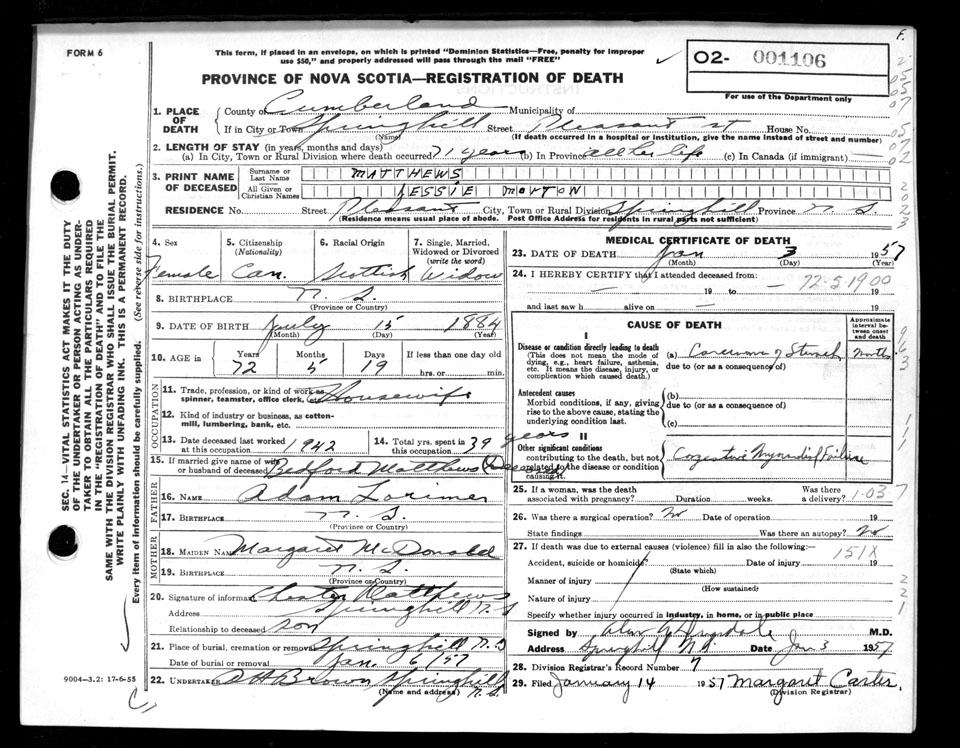 F.
FORM 6
This form, if placed in an envelope, on which is printed "Dominion Statistics—Free, penalty for improper
use $50," and properly addressed will pass through the mail "FREE"
02- 001106
For use of the Department only
PROVINCE OF NOVA SCOTIA—REGISTRATION OF DEATH
1. PLACE OF DEATH
County of Cumberland Municipality of
If in City or Town Springhill Street Pleasant st House No.
(Name) (If death occurred in a hospital or institution, give the name instead of street and number)
2. LENGTH OF STAY (in years, months and days)
(a) In City, Town or Rural Division where death occurred 71 years (b) In Province all her life (c) In Canada (if immigrant)
3. PRINT NAME OF DECEASED
Surname or Last Name MATTHEWS
All Given or Christian Names JESSIE MORTON
RESIDENCE No. Street Pleasant City, Town or Rural Division Springhill Province N S.
(Residence means usual place of abode. Post Office Address for residents in rural parts not sufficient)
4. Sex Female
5. Citizenship (Nationality) Can.
6. Racial Origin Scottish
7. Single, Married, Widowed or Divorced (write the word) Widow
8. BIRTHPLACE N. S.
(Province or Country)
9. DATE OF BIRTH July 15 1884
(Month) (Day) (Year)
10. AGE in Years 72 Months 5 Days 19 If less than one day old
hrs. or min.
OCCUPATION
11. Trade, profession, or kind of work as spinner, teamster, office clerk, etc. Housewife
12. Kind of industry or business, as cotton-mill, lumbering, bank, etc.
13. Date deceased last worked at this occupation 1942
14. Total yrs. spent in this occupation 39 years
15. If married give name of wife or husband of deceased Bedford Matthews (Deceased)
FATHER
16. NAME Adam Lorimer
17. BIRTHPLACE N. S.
(Province or Country)
MOTHER
18. MAIDEN NAME Margaret McDonald
19. BIRTHPLACE N. S.
(Province or Country)
20. Signature of informant Chester Matthews
Address Springhill N. S
Relationship to deceased son
21. Place of burial, cremation or removal Springhill N. S
Date of burial or removal Jan. 6/57
22. UNDERTAKER D H Brown Springhill N. S.
(Name and address)
MEDICAL CERTIFICATE OF DEATH
23. DATE OF DEATH Jan 3 1957
(Month) (Day) (Year)
24. I HEREBY CERTIFY that I attended deceased from:
19 to 19
72-5-1900
and last saw h alive on 19
CAUSE OF DEATH
Approximate interval between onset and death
I
Disease or condition directly leading to death
(This does not mean the mode of dying, e.g., heart failure, asthenia, etc. It means the disease, injury, or complication which caused death.)
(a) Carcinoma of Stomach Months
due to (or as a consequence of)
Antecedent causes
Morbid conditions, if any, giving rise to the above cause, stating the underlying condition last.
(b)
due to (or as a consequence of)
(c)
II
Other significant conditions
contributing to the death, but not related to the disease or condition causing it.
Congestive Myocardial Failure
25. If a woman, was the death associated with pregnancy? Duration weeks. Was there a delivery?
1-037
26. Was there a surgical operation? No Date of operation 19
State findings Was there an autopsy? No
27. If death was due to external causes (violence) fill in also the following:—
151X
Accident, suicide or homicide? Date of injury 19
(State which)
Manner of injury
(How sustained)
Nature of injury
Specify whether injury occurred in industry, in home, or in public place
Signed by M.D.
Address Springhill N.S. Date Jan 3 1957
28. Division Registrar's Record Number 7
29. Filed January 14 1957 Margaret Carter.
(Division Registrar)
SEC. 14—VITAL STATISTICS ACT MAKES IT THE DUTY
OF THE UNDERTAKER OR PERSON ACTING AS UNDER-
TAKER TO OBTAIN ALL THE PARTICULARS REQUIRED
IN THE "REGISTRATION OF DEATH" AND TO FILE THE
SAME WITH THE DIVISION REGISTRAR WHO SHALL ISSUE THE BURIAL PERMIT.
WRITE PLAINLY WITH UNFADING INK. THIS IS A PERMANENT RECORD.
Every item of information should be carefully supplied. (See reverse side for instructions.)
9004—3.2: 17-6-55